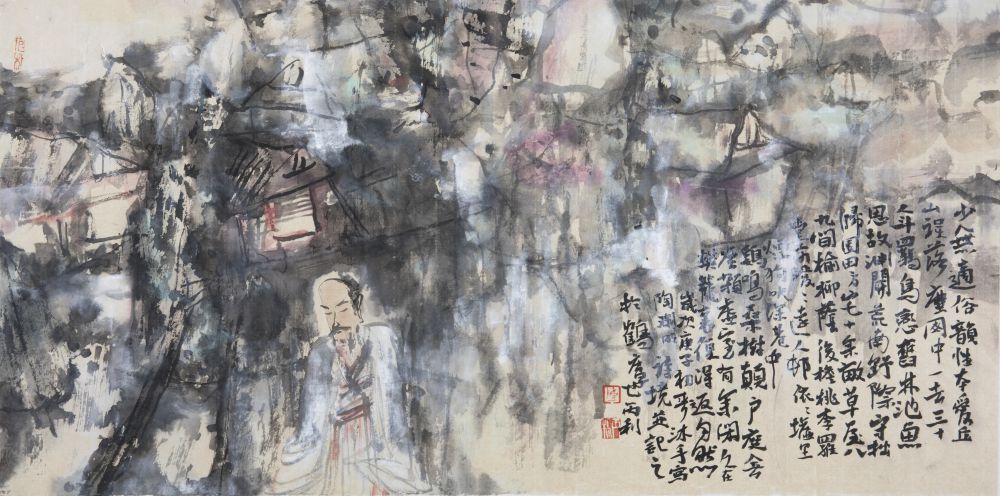 少無適俗韻性本愛丘
山誤落塵网中一去三十
年羈鳥戀舊林池魚
思故淵開荒南野際守拙
歸園田方宅十余畝草屋八
九間榆柳蔭後檐桃李羅
堂前曖〻遠人邨依〻墟里
煙狗吠深巷中
雞鳴桑樹顛戶庭無
塵雜虛室有余閑久在
樊籠裏復得返自然
歲次庚子初冬冰丰寫
陶淵明詩境並記之
於鶴